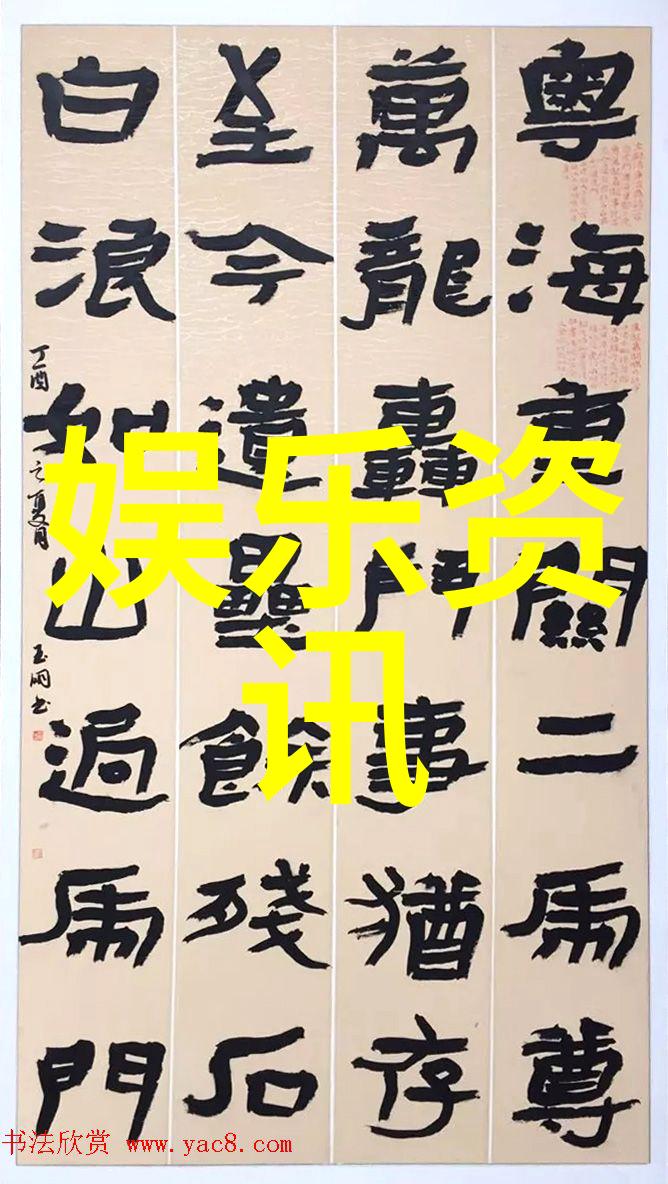 粵海重關二虎尊
萬龍轟鬥事猶存
至今遺壘餘殘石
白浪如山過虎門
丁酉之夏月
娱乐资
讯
书法欣赏 www.yac8.com